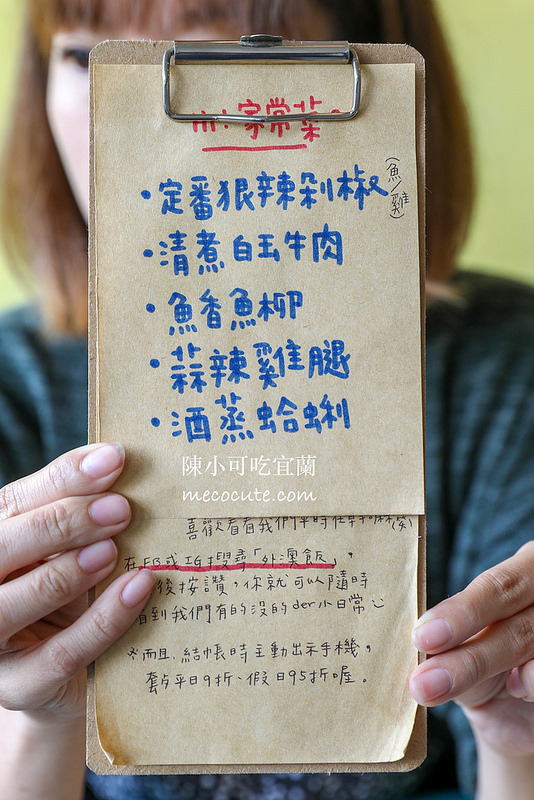 家常菜。
・定番狠辣剁椒(魚/雞)
・清煮白玉牛肉
・魚香魚柳
・蒜辣雞腿
・酒蒸蛤蜊
陳小可吃宜蘭
mecocute.com
喜歡看看我們平時在
在FB或IG搜尋「外澳飯」,
後按讚,你就可以隨時
看到我們有的沒的der小日常
※而且,結帳時主動出示手機,
套夕平日9折、假日95折喔。